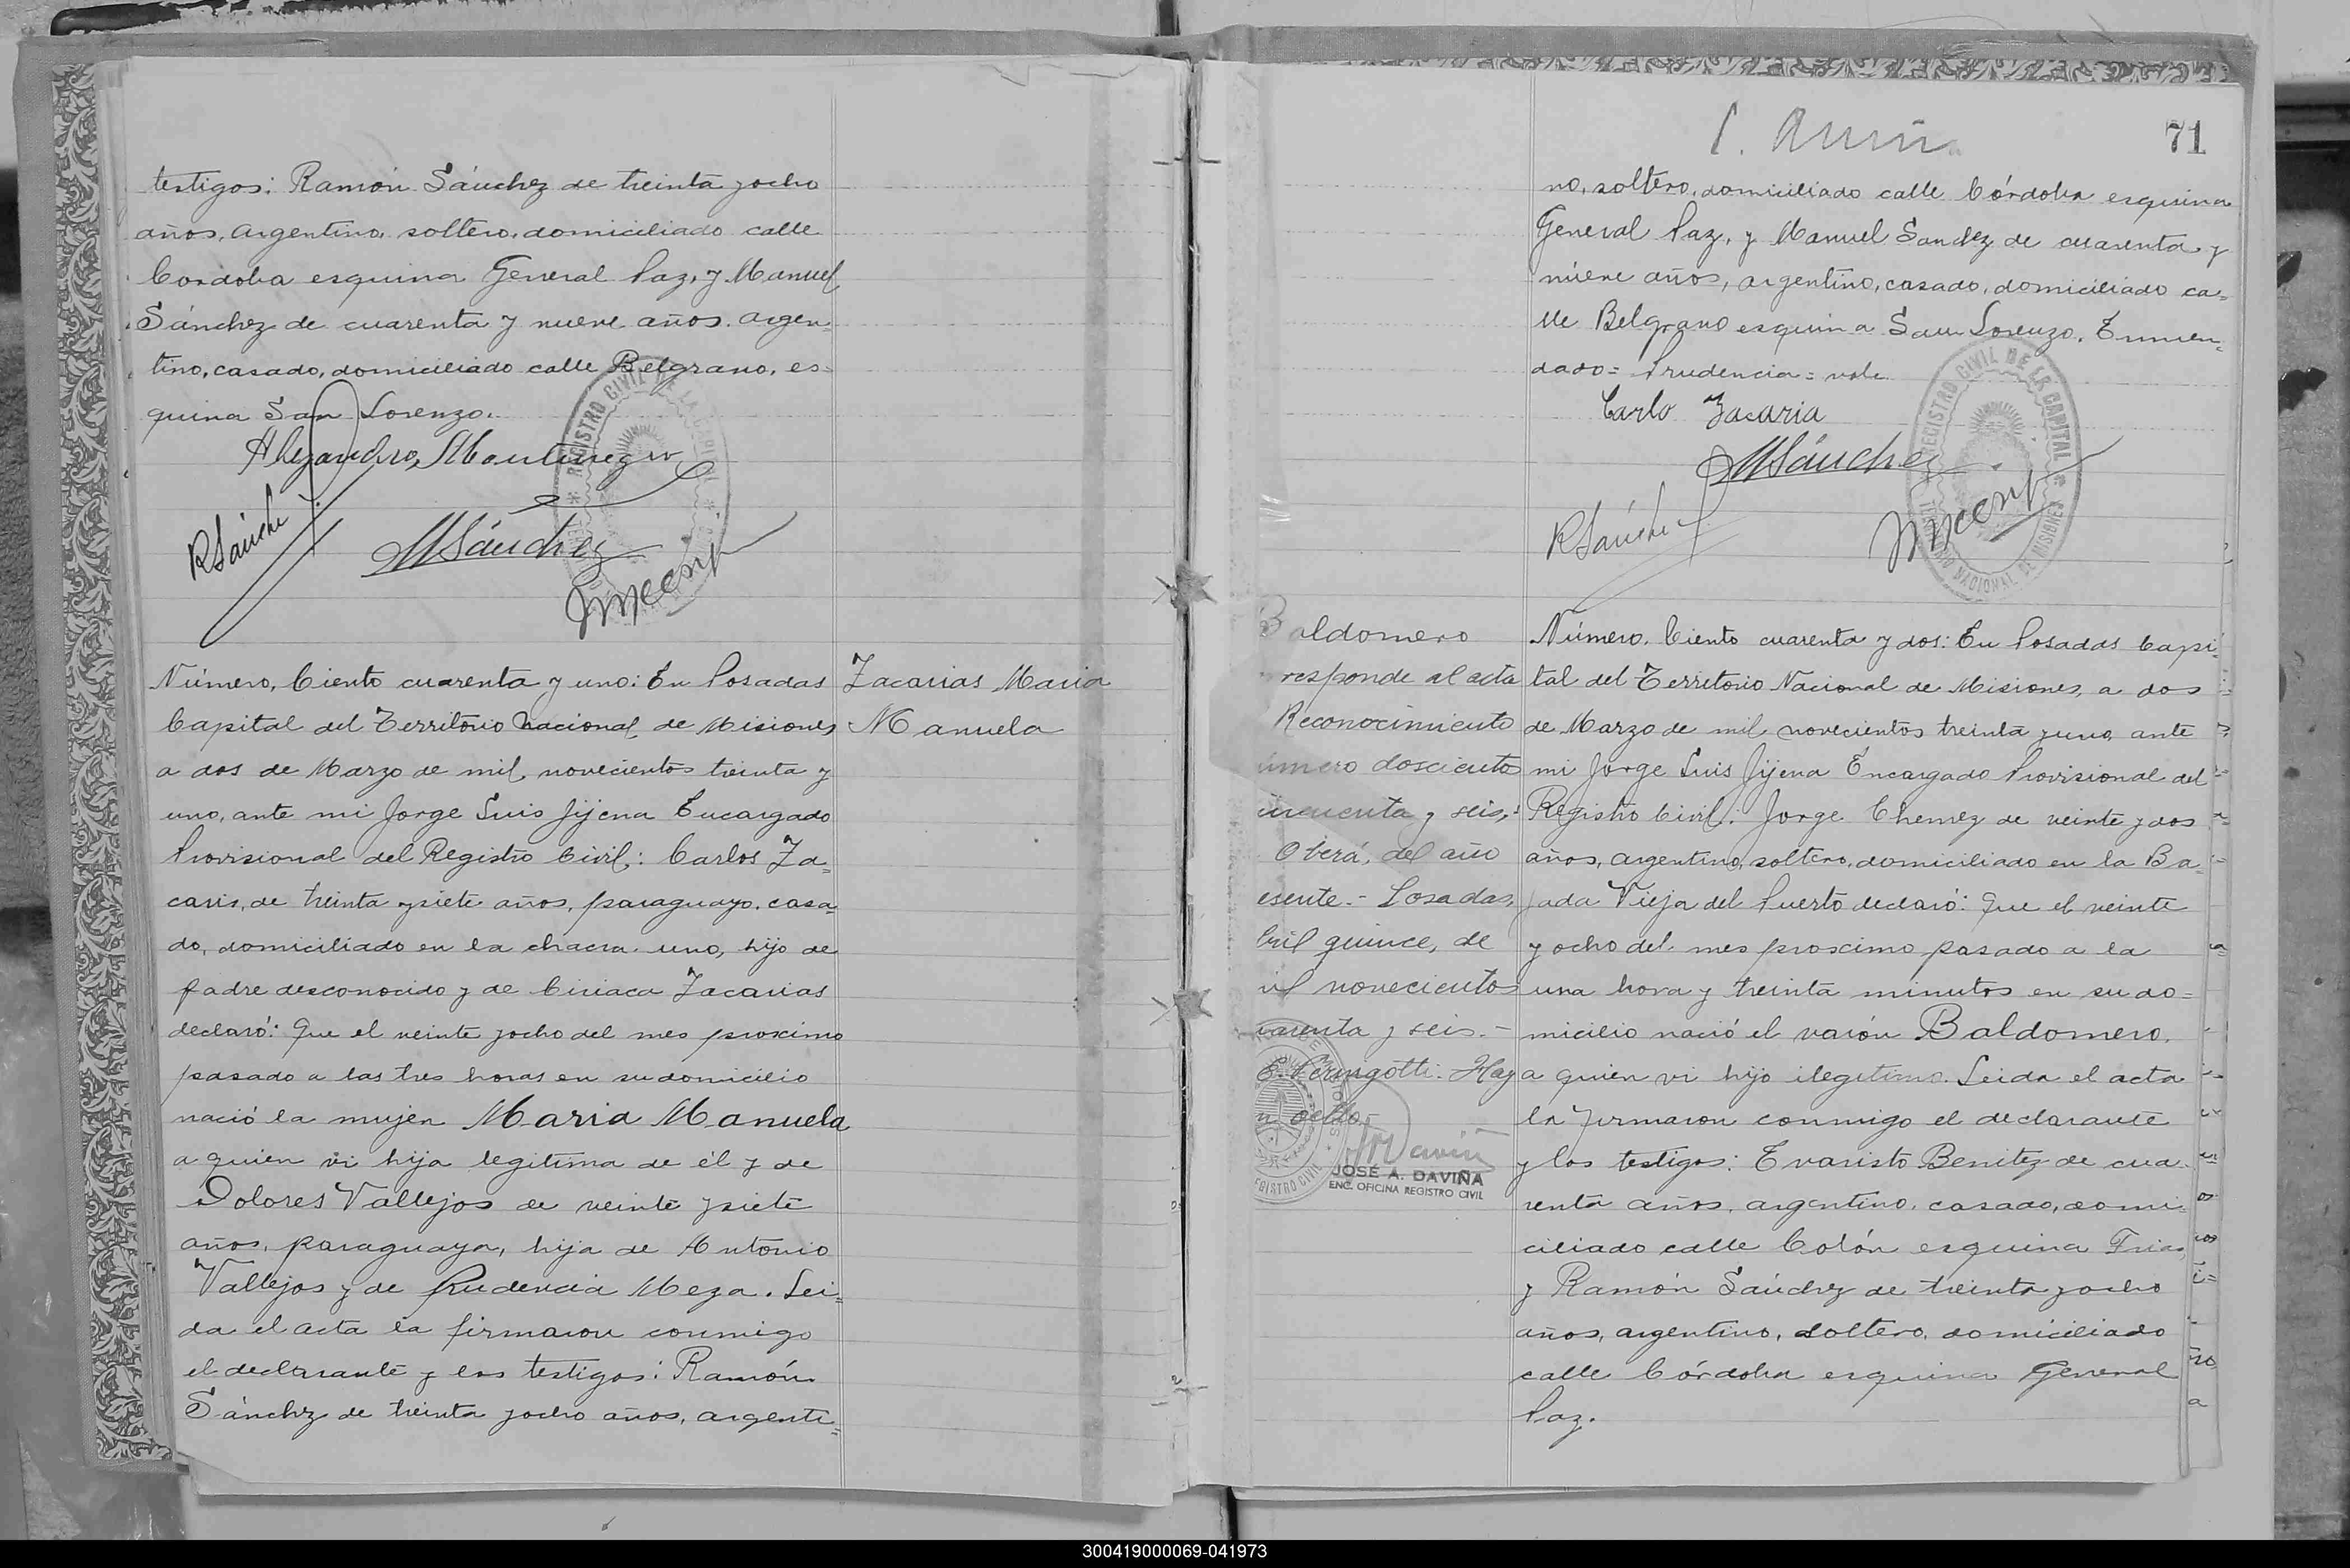 testigos: Ramón Sánchez de treinta y ocho
años, argentino, soltero, domiciliado calle
Cordoba esquina General Paz, y Manuel
Sánchez de cuarenta y nueve años, argen=
tino, casado, domiciliado calle Belgrano, es=
quina San Lorenzo.
Alejandro Montenegro
RSánche
MSánchez
Número, Ciento cuarenta y uno: En Posadas
Capital del Territorio Nacional, de Misiones
a dos de Marzo de mil novecientos treinta y
uno, ante mi Jorge Luis Jijena Encargado
Provisional del Registro Civil: Carlos Za=
caris, de treinta y siete años, paraguayo, casa=
do, domiciliado en la chacra uno, hijo de
padre desconocido y de Ciriaca Zacarias
declaró: Que el veinte y ocho del mes proximo
pasado a las tres horas en su domicilio
nació la mujer Maria Manuela
a quien vi hija legitima de él y de
Dolores Vallejos de veinte y siete
años, paraguaya, hija de Antonio
Vallejos y de Prudencia Meza. Lei=
da el acta la firmaron conmigo
el declarante y los testigos: Ramón
Sánchz de treinta y ocho años, argenti=
Zacarias Maria
Manuela
71
no, soltero, domiciliado calle Córdoba esquina
General Paz, y Manuel Sanchez de cuarenta y
nueve años, argentino, casado, domiciliado ca=
lle Belgrano esquina San Lorenzo. Enmen=
dado= Prudencia= vale
Carlo Zacaria
MSánche
RSánche
REGISTRO CIVIL DE LA CAPITAL
TERRITORIO NACIONAL DE MISIONES
Baldomero
responde al acta
Reconocimiento
úmero dosciento
incuenta y seis,
Oberá, del año
esente.- Posadas,
bril quince, de
il novecientos
uarenta y seis.-
Hay
n sello.-
JOSÉ A. DAVIÑA
ENC. OFICINA REGISTRO CIVIL
Número. Ciento cuarenta y dos: En Posadas Capi=
tal del Territorio Nacional de Misiones, a dos
de Marzo de mil novecientos treinta y uno, ante
mi Jorge Luis Jijena Encargado Provisional del
Registro Civil: Jorge Chemez de veinte y dos
años, argentino, soltero, domiciliado en la Ba=
jada Vieja del Puerto declaró: Que el veinte
y ocho del mes proscimo pasado a la
una hora y treinta minutos en su do=
micilio nació el varón Baldomero,
a quien vi hijo ilegitimo. Leida el acta
la firmaron conmigo el declarante
y los testigos: Evaristo Benitez de cua=
renta años, argentino, casado, domi=
ciliado calle Colón esquina Frias,
y Ramón Sánchz de treinta y ocho
años, argentino, soltero, domiciliado
calle Córdoba esquina General
Paz.
300419000069-041973